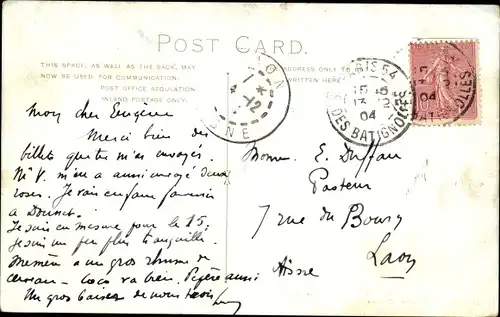 POST CARD.
THIS SPACE, AS WELL AS THE BACK, MAY
NOW BE USED FOR COMMUNICATION.
POST OFFICE REGULATION
INLAND POSTAGE ONLY.
ADDRESS ONLY TO
WRITTEN HERE
PARIS 54
15 15
13 12
04
DES BATIGNOLLES
15
04
BATIGNOLLES
12
AISNE
Mon cher Eugène
Merci bien des
billets que tu m'as envoyés.
Mr V. m'en a aussi envoyé deux
roses. Je vais en faire parvenir
à
Je suis en mesure pour le 15,
je suis un peu plus tranquille.
Mémère a un gros rhume de
cerveau - Coco va bien. Pépère aussi
Un gros baiser de nous trois
Monsr. E. Duffau
Pasteur
7 rue du Bourg
Laon
Aisne